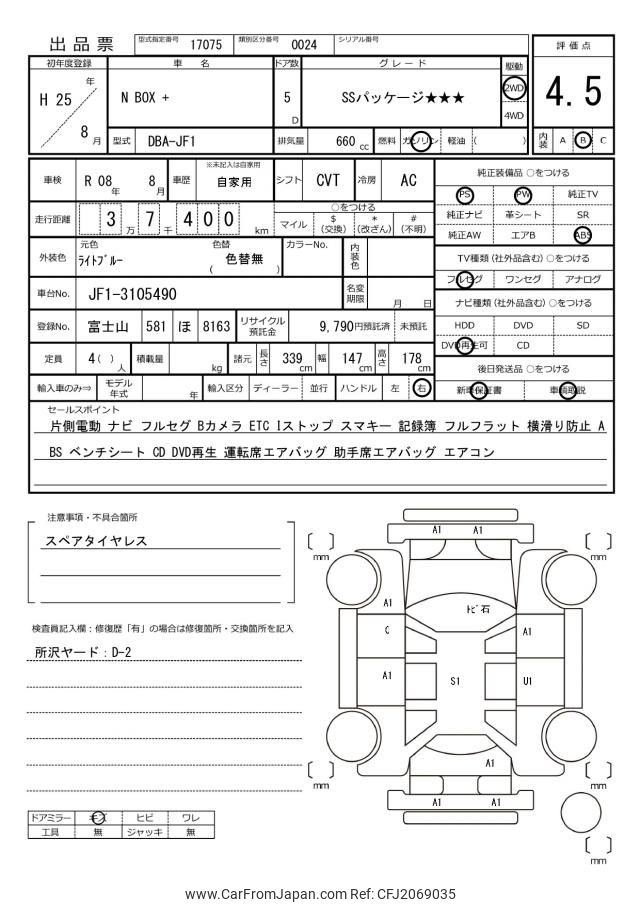 出品票
型式指定番号 17075 類別区分番号 0024 シリアル番号
初年度登録 車 名 ドア数 グレード 駆動 評価点
H 25 年 8 月
N BOX +
5 D
SSパッケージ★★★
2WD
4WD
4.5
型式 DBA-JF1 排気量 660 cc 燃料 ガソリン 軽油 ( )
内装 A B C
車検 R 08 年 8 月 車歴 ※未記入は自家用 自家用 シフト CVT 冷房 AC
走行距離 3 7 4 0 0 万 千 km
○をつける
マイル $ (交換) * (改ざん) # (不明)
外装色 元色 ライトブルー 色替 ( 色替無 ) カラーNo. 内装色
車台No. JF1-3105490 名変期限 月 日
登録No. 富士山 581 ほ 8163 リサイクル預託金 9,790円預託済 未預託
定員 4 ( ) 人 積載量 kg 諸元 長さ 339 cm 幅 147 cm 高さ 178 cm
輸入車のみ⇒ モデル年式 年 輸入区分 ディーラー 並行 ハンドル 左 右
純正装備品 ○をつける
PS PW 純正TV
純正ナビ 革シート SR
純正AW エアB ABS
TV種類 (社外品含む) ○をつける
フルセグ ワンセグ アナログ
ナビ種類 (社外品含む) ○をつける
HDD DVD SD
DVD再生可 CD
後日発送品 ○をつける
新車保証書 車輌取説
セールスポイント
片側電動 ナビ フルセグ Bカメラ ETC Iストップ スマキー 記録簿 フルフラット 横滑り防止 A
BS ベンチシート CD DVD再生 運転席エアバッグ 助手席エアバッグ エアコン
注意事項・不具合箇所
スペアタイヤレス
検査員記入欄：修復歴「有」の場合は修復箇所・交換箇所を記入
所沢ヤード：D-2
ドアミラー キズ ヒビ ワレ
工具 無 ジャッキ 無
A1 A1
mm mm
A1 トビ石
C A1
A1 S1 U1
A1
mm mm
A1 A1
mm
www.CarFromJapan.com Ref: CFJ2069035